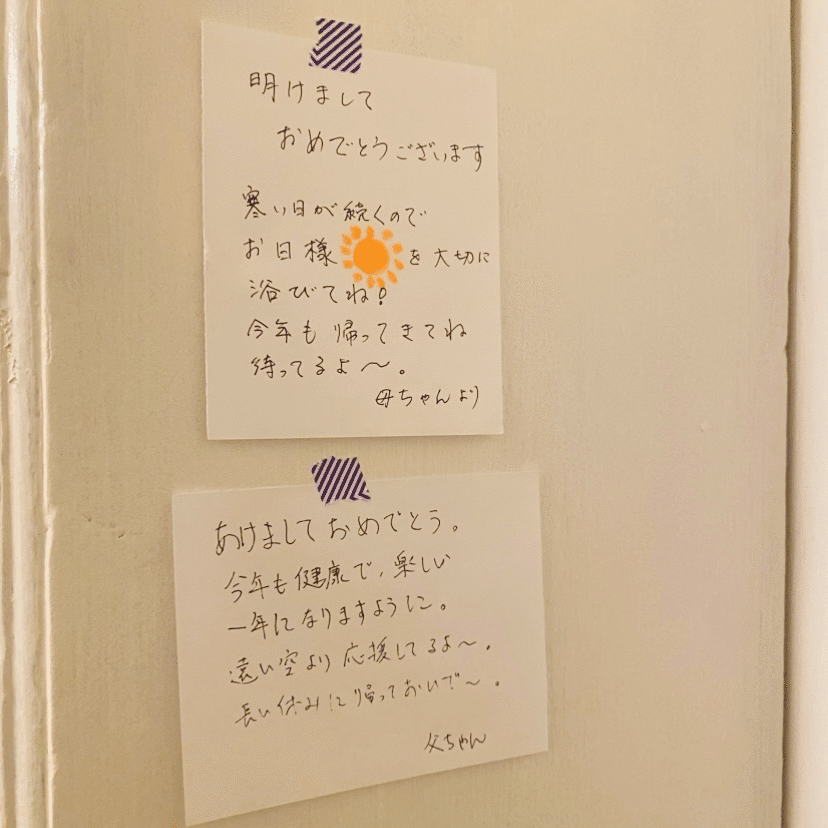 明けまして
おめでとうございます
寒い日が続くので
お日様を大切に
浴びてね!
今年も帰ってきてね
待ってるよ〜。
母ちゃんより
あけましておめでとう。
今年も健康で、楽しい
一年になりますように。
遠い空より応援してるよ〜。
長い休みに帰っておいで〜。
父ちゃん